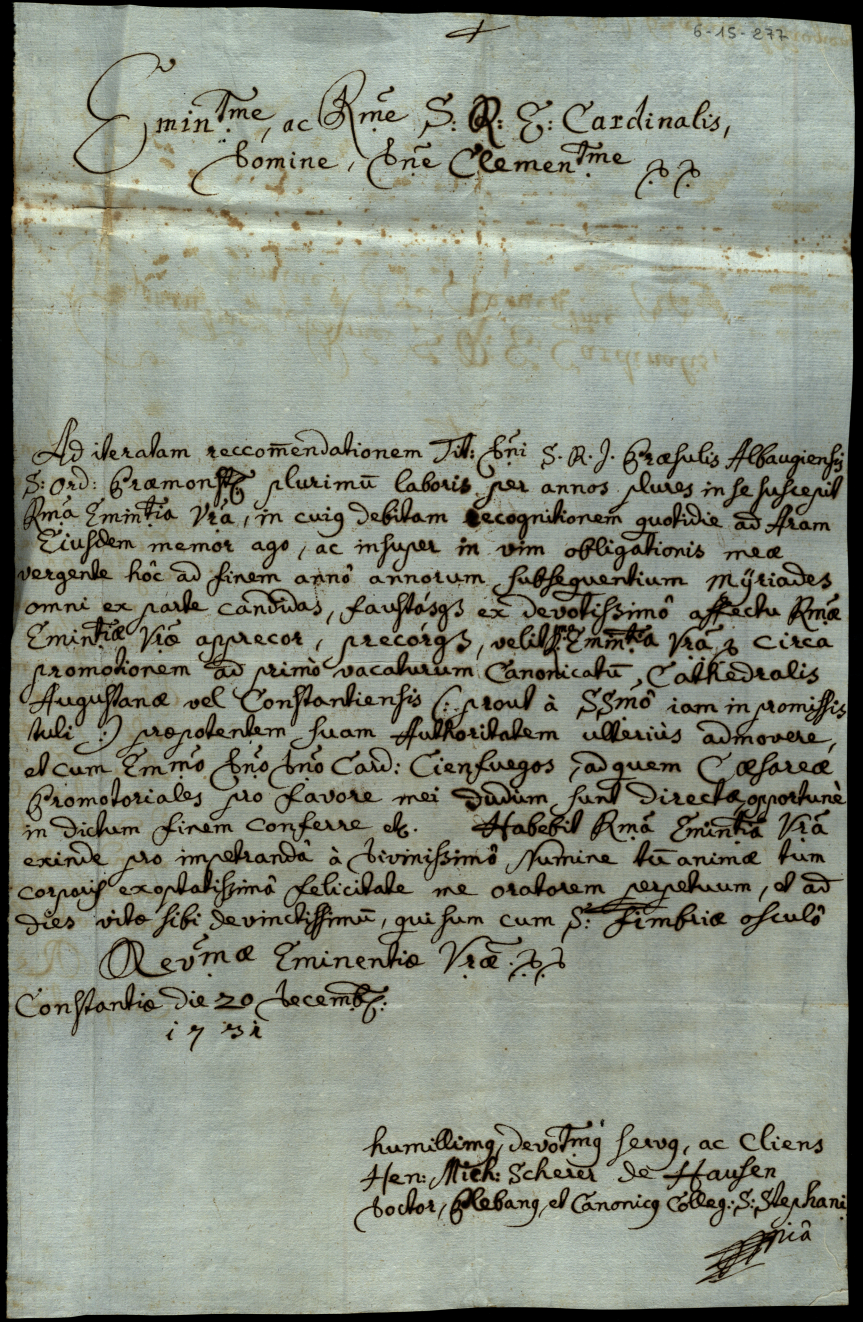 6-15-277
Emin.tme, ac Rm̃e S: R: E: Cardinalis,
Domine, Dñe Clemen.tme
Ad iteratam reccom̃endationem Tit: Dñi S. R. J. Præsulis Albaugiensis
S: Ord: Præmonst plurimū laboris per annos plures in se suscepit
Rm̃a Emin̄tia Vr̃a, in cuiꝯ debitam recognitionem quotidie ad Aram
Eiusdem memor ago, ac insuper in vim obligationis meæ
vergente hôc ad finem annô annorum subsequentium Mÿriades
omni ex parte candidas, faustásqȝ ex devotissimô affectu Rm̃æ
Emin̄tiæ Vr̃æ apprecor, precórqȝ, velit Emin̄tia Vr̃a circa
promotionem ad primò vacaturum Canonicatū, Cathedralis
Augustanæ vel Constantiensis (: prout à SSmô iam in promissis
tuli :) præpotentem suam Authoritatem ulteriùs admovere,
et cum Em̃mo Dño Dño Card: Cienfuegos, ad quem Cæsareæ
Promotoriales pro favore mei dudum sunt directæ, opportunè
in dictum finem conferre etc. Habebit Rm̃a Emin̄tia Vr̃a
exinde pro impetrandâ à Divinissimô Numine tū animæ tum
corporis exoptatissimâ felicitate me oratorem perpetuum, et ad
dies vitæ sibi devinctissimū, qui sum cum S: fimbriæ osculô
Rev.mæ Eminentiæ Vr̃æ.
Constantiæ die 20 Decemb:
1731
humillimꝯ, devot.mꝯ servꝯ, ac Cliens
Hen: Mich: Scherer de Hausen
Doctor, Plebanꝯ, et Canonicꝯ Colleg: S: Stephani